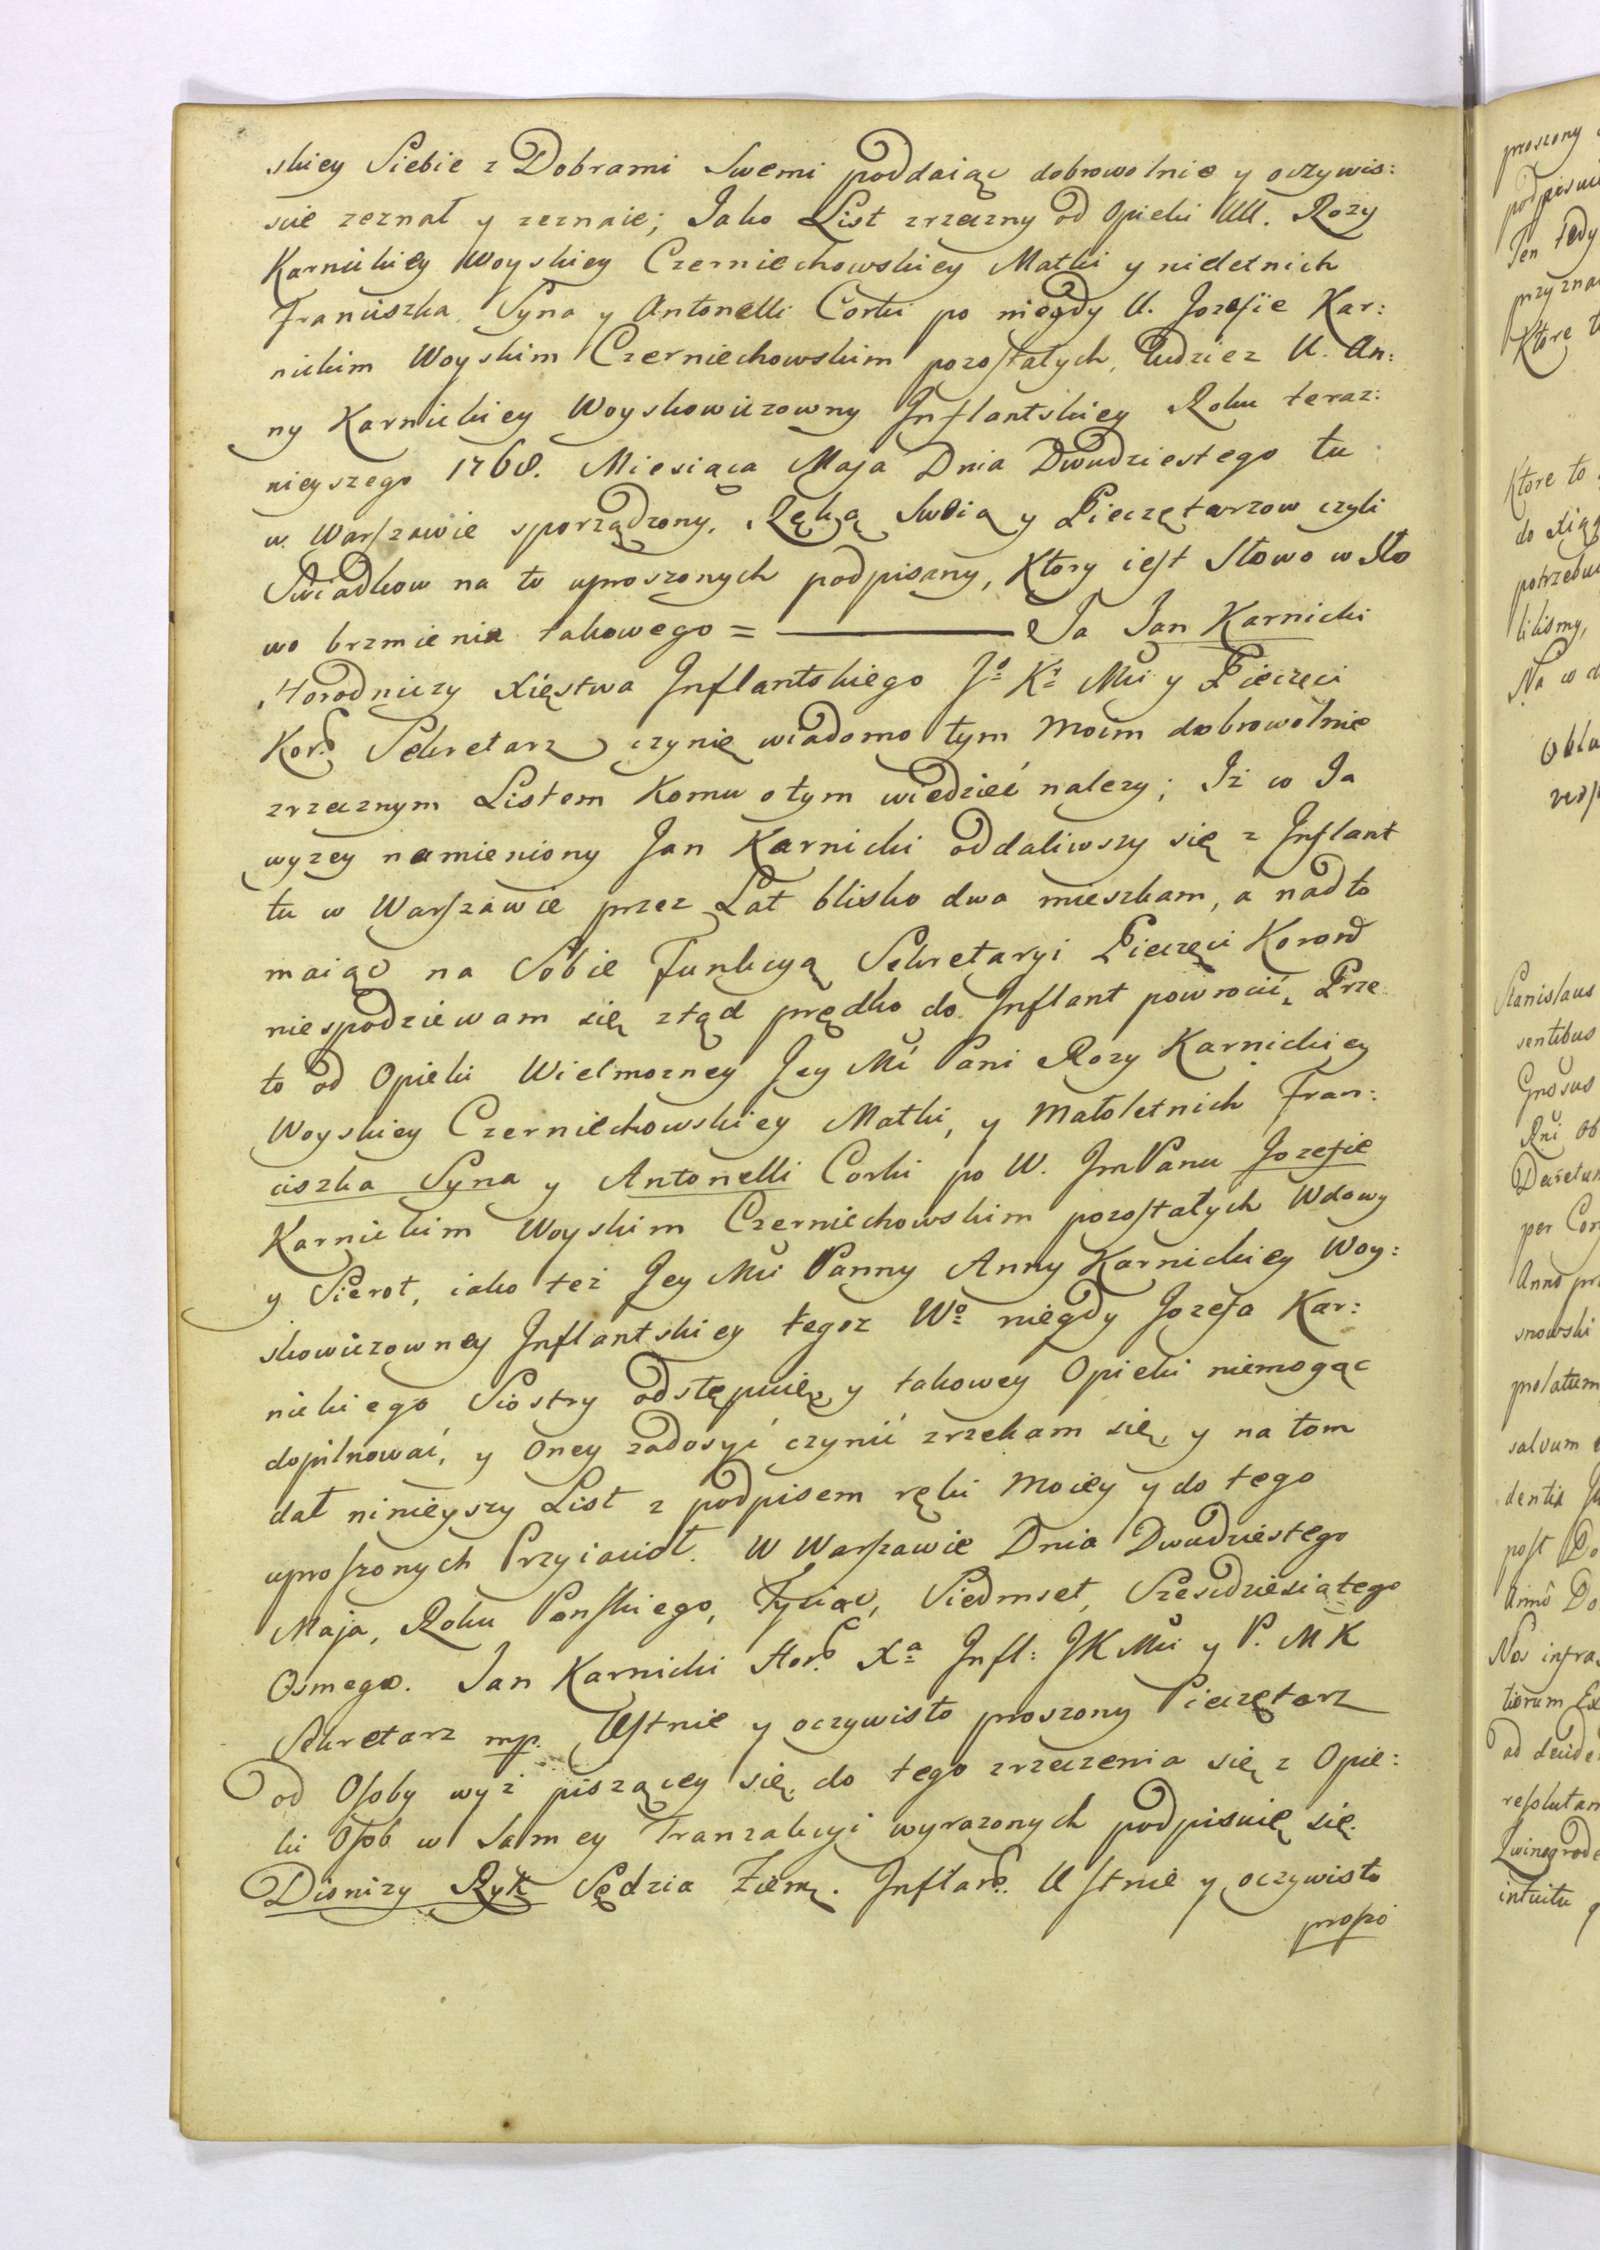 skiey Siebie z Dobrami Swemi poddaiąc dobrowolnie y oczywis:
cie zeznał y zeznaie; Jako List zrzeczny od Opieki UU. Rozy
Karnickiey Woyskiey Czerniechowskiey Matki y nieletnich
Franciszka Syna y Antonelli Corki po niegdy U. Jozefie Kar:
nickim Woyskim Czerniechowskim pozostałych, tudziez U. An:
ny Karnickiey Woyskowiczowny Inflantskiey Roku teraz:
nieyszego 1768. Miesiąca Maja Dnia Dwudziestego tu
w Warszawie sporządzony, Ręką Swoią y Pieczętarzow czyli
Swiadkow na to uproszonych podpisany, Ktory iest Słowo w Sło
wo brzmienia takowego = Ja Jan Karnicki
Horodniczy Xięstwa Inflantskiego Jo Ki Mci y Pieczęci
Kor. Sekretarz czynię wiadomo tym Moim dobrowolnie
zrzecznym Listem Komu o tym wiedzieć nalezy; Iż co Ja
wyzey namieniony Jan Karnicki oddaliwszy się z Inflant
tu w Warszawie przez Lat blisko dwa mieszkam, a nadto
maiąc na Sobie Funkcyą Sekretaryi Pieczęci Koron
niespodziewam się ztąd prędko do Inflant powrocić, Prze
to od Opieki Wielmozney Jey Mci Pani Rozy Karnickiey
Woyskiey Czerniechowskiey Matki, y Małoletnich Fran:
ciszka Syna y Antonelli Corki po W. Jm Panu Jozefie
Karnickim Woyskim Czerniechowskim pozostałych Wdowy
y Sierot, iako też Jey Mci Panny Anny Karnickiey Woy:
skowiczowney Inflantskiey tegoz Wo niegdy Jozefa Kar:
nickiego Siostry odstępuię, y takowey Opieki niemogąc
dopilnować, y Oney zadosyć czynić zrzekam się, y na tom
dał ninieyszy List z podpisem ręki Moiey y do tego
uproszonych Przyiacioł. W Warszawie Dnia Dwudziestego
Maja, Roku Panskiego, Tysiąc, Siedmset, Szescdziesiątego
Osmego. Jan Karnicki Hor. Xa Infl: JK Mci y P. M K
Sekretarz mp. Ustnie y oczywisto proszony Pieczętarz
od Osoby wyż piszącey się do tego zrzeczenia się z Opie:
ki Osob w Samey Tranzakcyi wyrazonych podpisuię się
Dionizy Ryk Sędzia Ziem. Inflan. Ustnie y oczywisto
proszo
proszony
Ten tedy
przyzna
Ktore t
Ktore to
do Xiąg
Na
Obla
Stanislaus
sentibus
Gnosus
per Con
Anno pr
snowski
prolatum
salvum
dentia
post Do
Anno Do
Nos infra
tiorum Ex
ad decide
intuitu